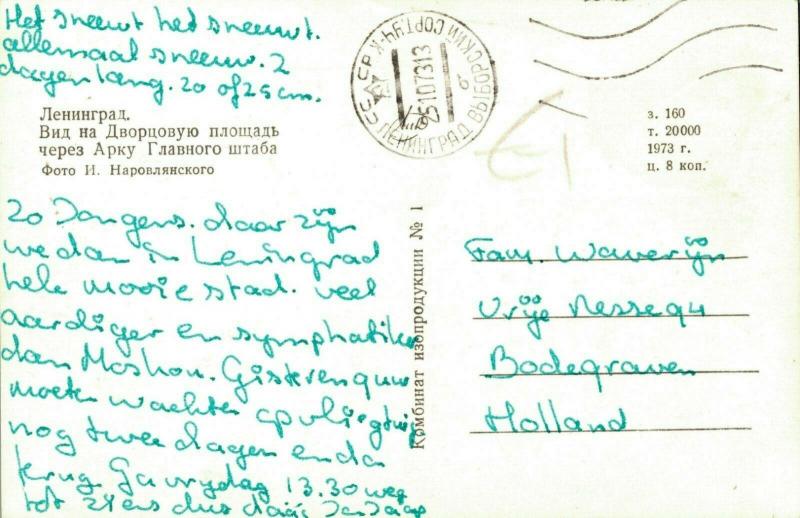 Het sneeuwt het sneeuwt.
allemaal sneeuw. 2
dagen lang. 20 of 25 cm.
СССР
25107313
ЛЕНИНГРАД ВЫБОРСКИЙ СОРТ.УЧ-К
Ленинград.
Вид на Дворцовую площадь
через Арку Главного штаба
Фото И. Наровлянского
з. 160
т. 20000
1973 г.
ц. 8 коп.
£1
Zo Jongens. daar zijn
we dan in Leningrad
hele mooie stad. veel
aardiger en symphatieker
dan Moskou. Gisteren
moeten wachten op vliegtuig
nog twee dagen en dan
terug Ga vrijdag 13.30 weg
tot ziens dus
Комбинат изопродукции № 1
Fam. Waverijn
Vrije Nesse 94
Bodegraven
Holland